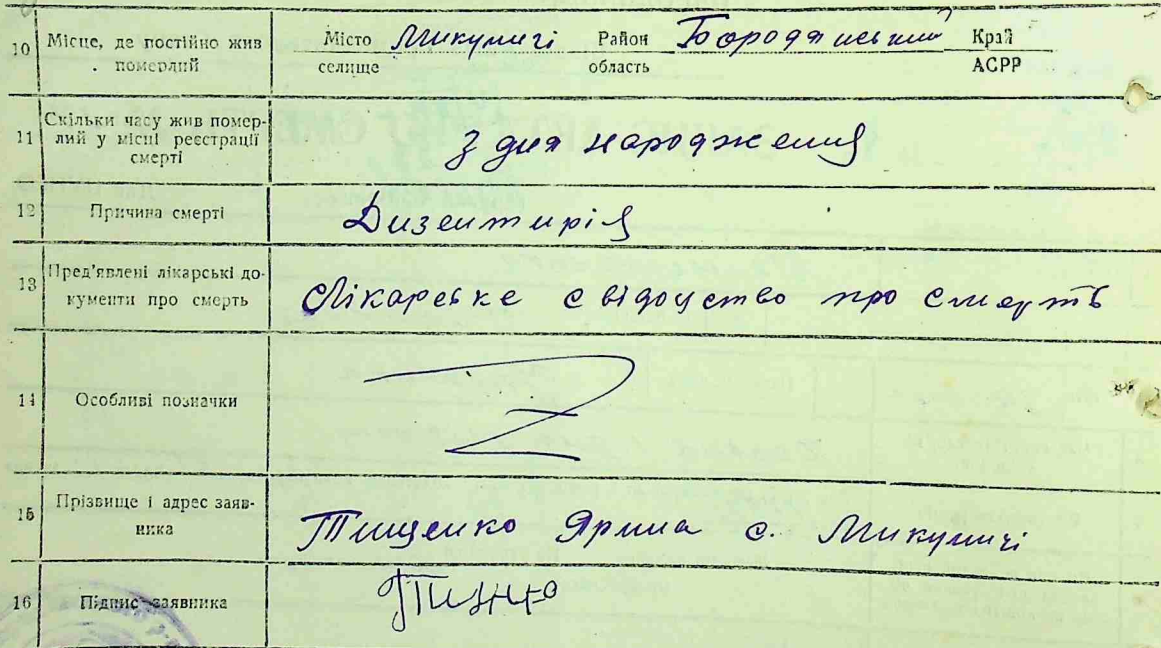 10 Місце, де постійно жив померлий Місто селище Микуличі Район область Бородянський Край АСРР
11 Скільки часу жив помер-
лий у місці реєстрації
смерті
З дня народження
12 Причина смерті Дизентирія
13 Пред'явлені лікарські до-
кументи про смерть
Лікарське свідоцтво про смерть
14 Особливі позначки Z
15 Прізвище і адрес заяв-
ника
Тищенко Ярина с. Микуличі
16 Підпис заявника